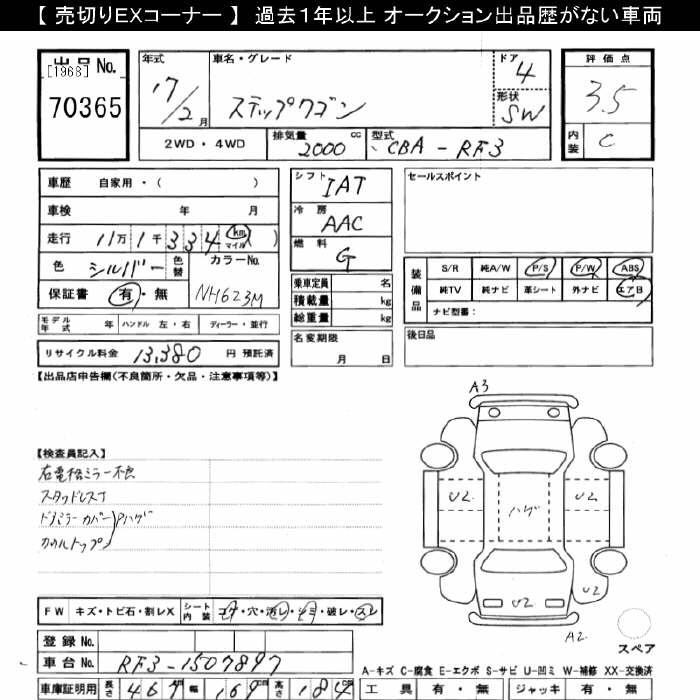 【 売切りEXコーナー 】 過去1年以上 オークション出品歴がない車両
出品No.
[1968]
70365
年式
17/2月
車名・グレード
ステップワゴン
ドア
4
形状
SW
2WD・4WD
排気量
2000
cc
型式
CBA-RF3
評価点
3.5
内装
C
車歴 自家用・( )
車検 年 月
走行 11万1千334 km マイル ( )
色 シルバー 色替 カラーNo.
NH623M
保証書 有・無
モデル年式 年 ハンドル 左・右 ディーラー・並行
リサイクル料金 13,380 円 預託済
シフト
IAT
冷房
AAC
燃料
G
乗車定員 名
積載量 kg
総重量 kg
名変期限
月 日
セールスポイント
装備品
S/R 純A/W P/S P/W ABS
純TV 純ナビ 革シート 外ナビ エアB
ナビ型番:
後日品
【出品店申告欄(不良箇所・欠品・注意事項等)】
【検査員記入】
右電格ミラー不良
スタッドレス
ドアミラーカバー Pハゲ
カウルトップ
A3
U2
ハゲ
U2
U2
U2
A2
スペア
FW キズ・トビ石・割レX シート内装 コゲ・穴・汚レ・シミ・破レ・スレ
登録No.
車台No. RF3-1507897
A-キズ C-腐食 E-エクボ S-サビ U-凹ミ W-補修 XX-交換済
車庫証明用 長さ 467 幅 169 cm 高さ 184 cm
工具 有・無 ジャッキ 有・無